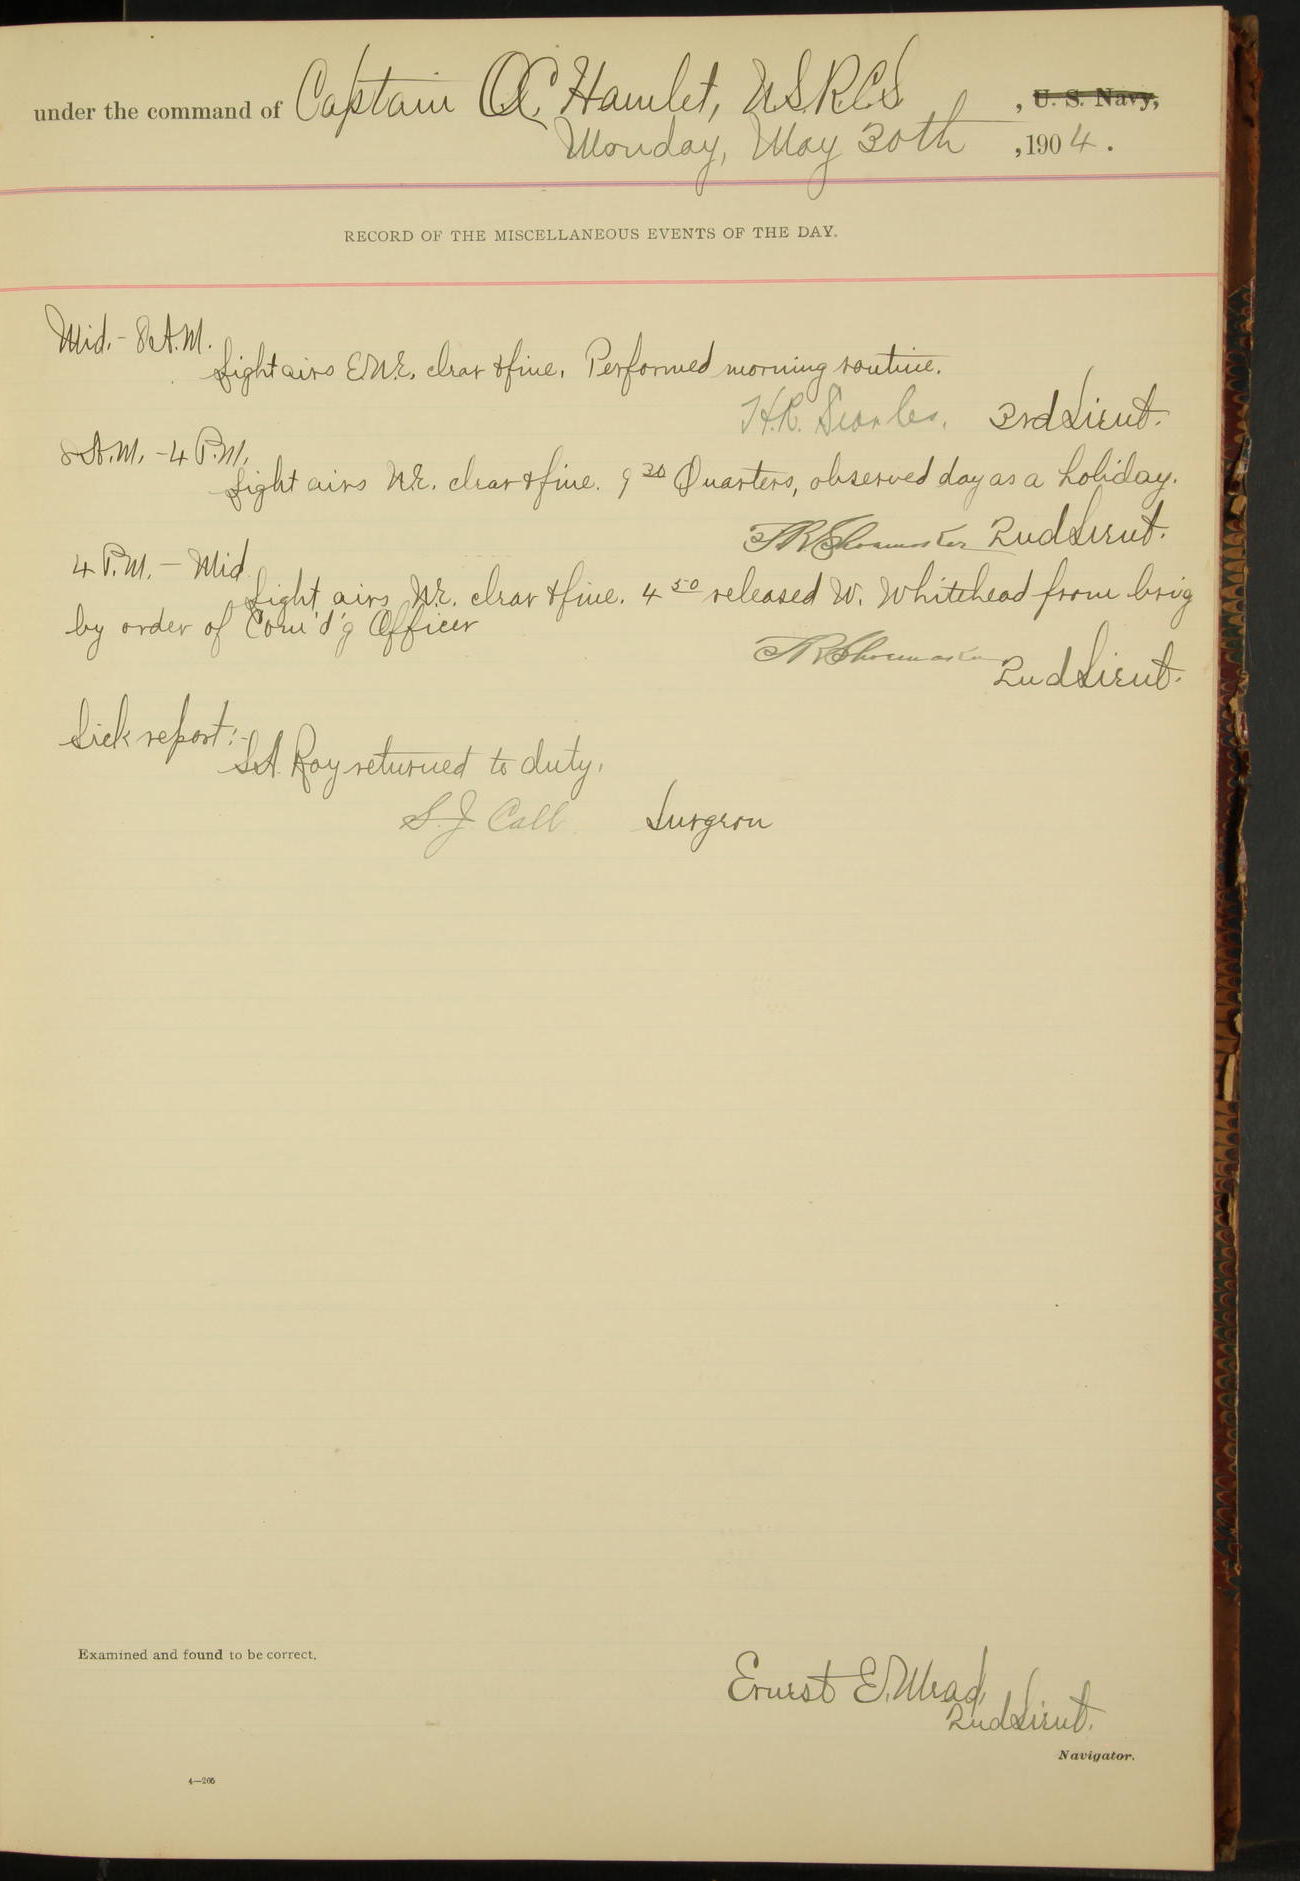 under the command of Captain O.C. Hamlet, U.S.R.C.S , U. S. Navy,
Monday, May 30th , 1904.
RECORD OF THE MISCELLANEOUS EVENTS OF THE DAY.
Mid. - 8 A.M.
Light airs E.N.E. clear & fine. Performed morning routine.
H.R. Searles. 3rd Lieut.
8 A.M. - 4 P.M.
Light airs N.E. clear & fine. 9 30 Quarters, observed day as a holiday.
F.R. Shoemaker 2nd Lieut.
4 P.M. - Mid
Light airs N.E. clear & fine. 4 50 released W. Whitehead from brig
by order of Com'd'g Officer
F.R. Shoemaker
2nd Lieut.
Sick report:-
S.A. Roy returned to duty.
S. J. Call Surgeon
Examined and found to be correct.
Ernest E. Mead,
2nd Lieut.
Navigator.
4—205